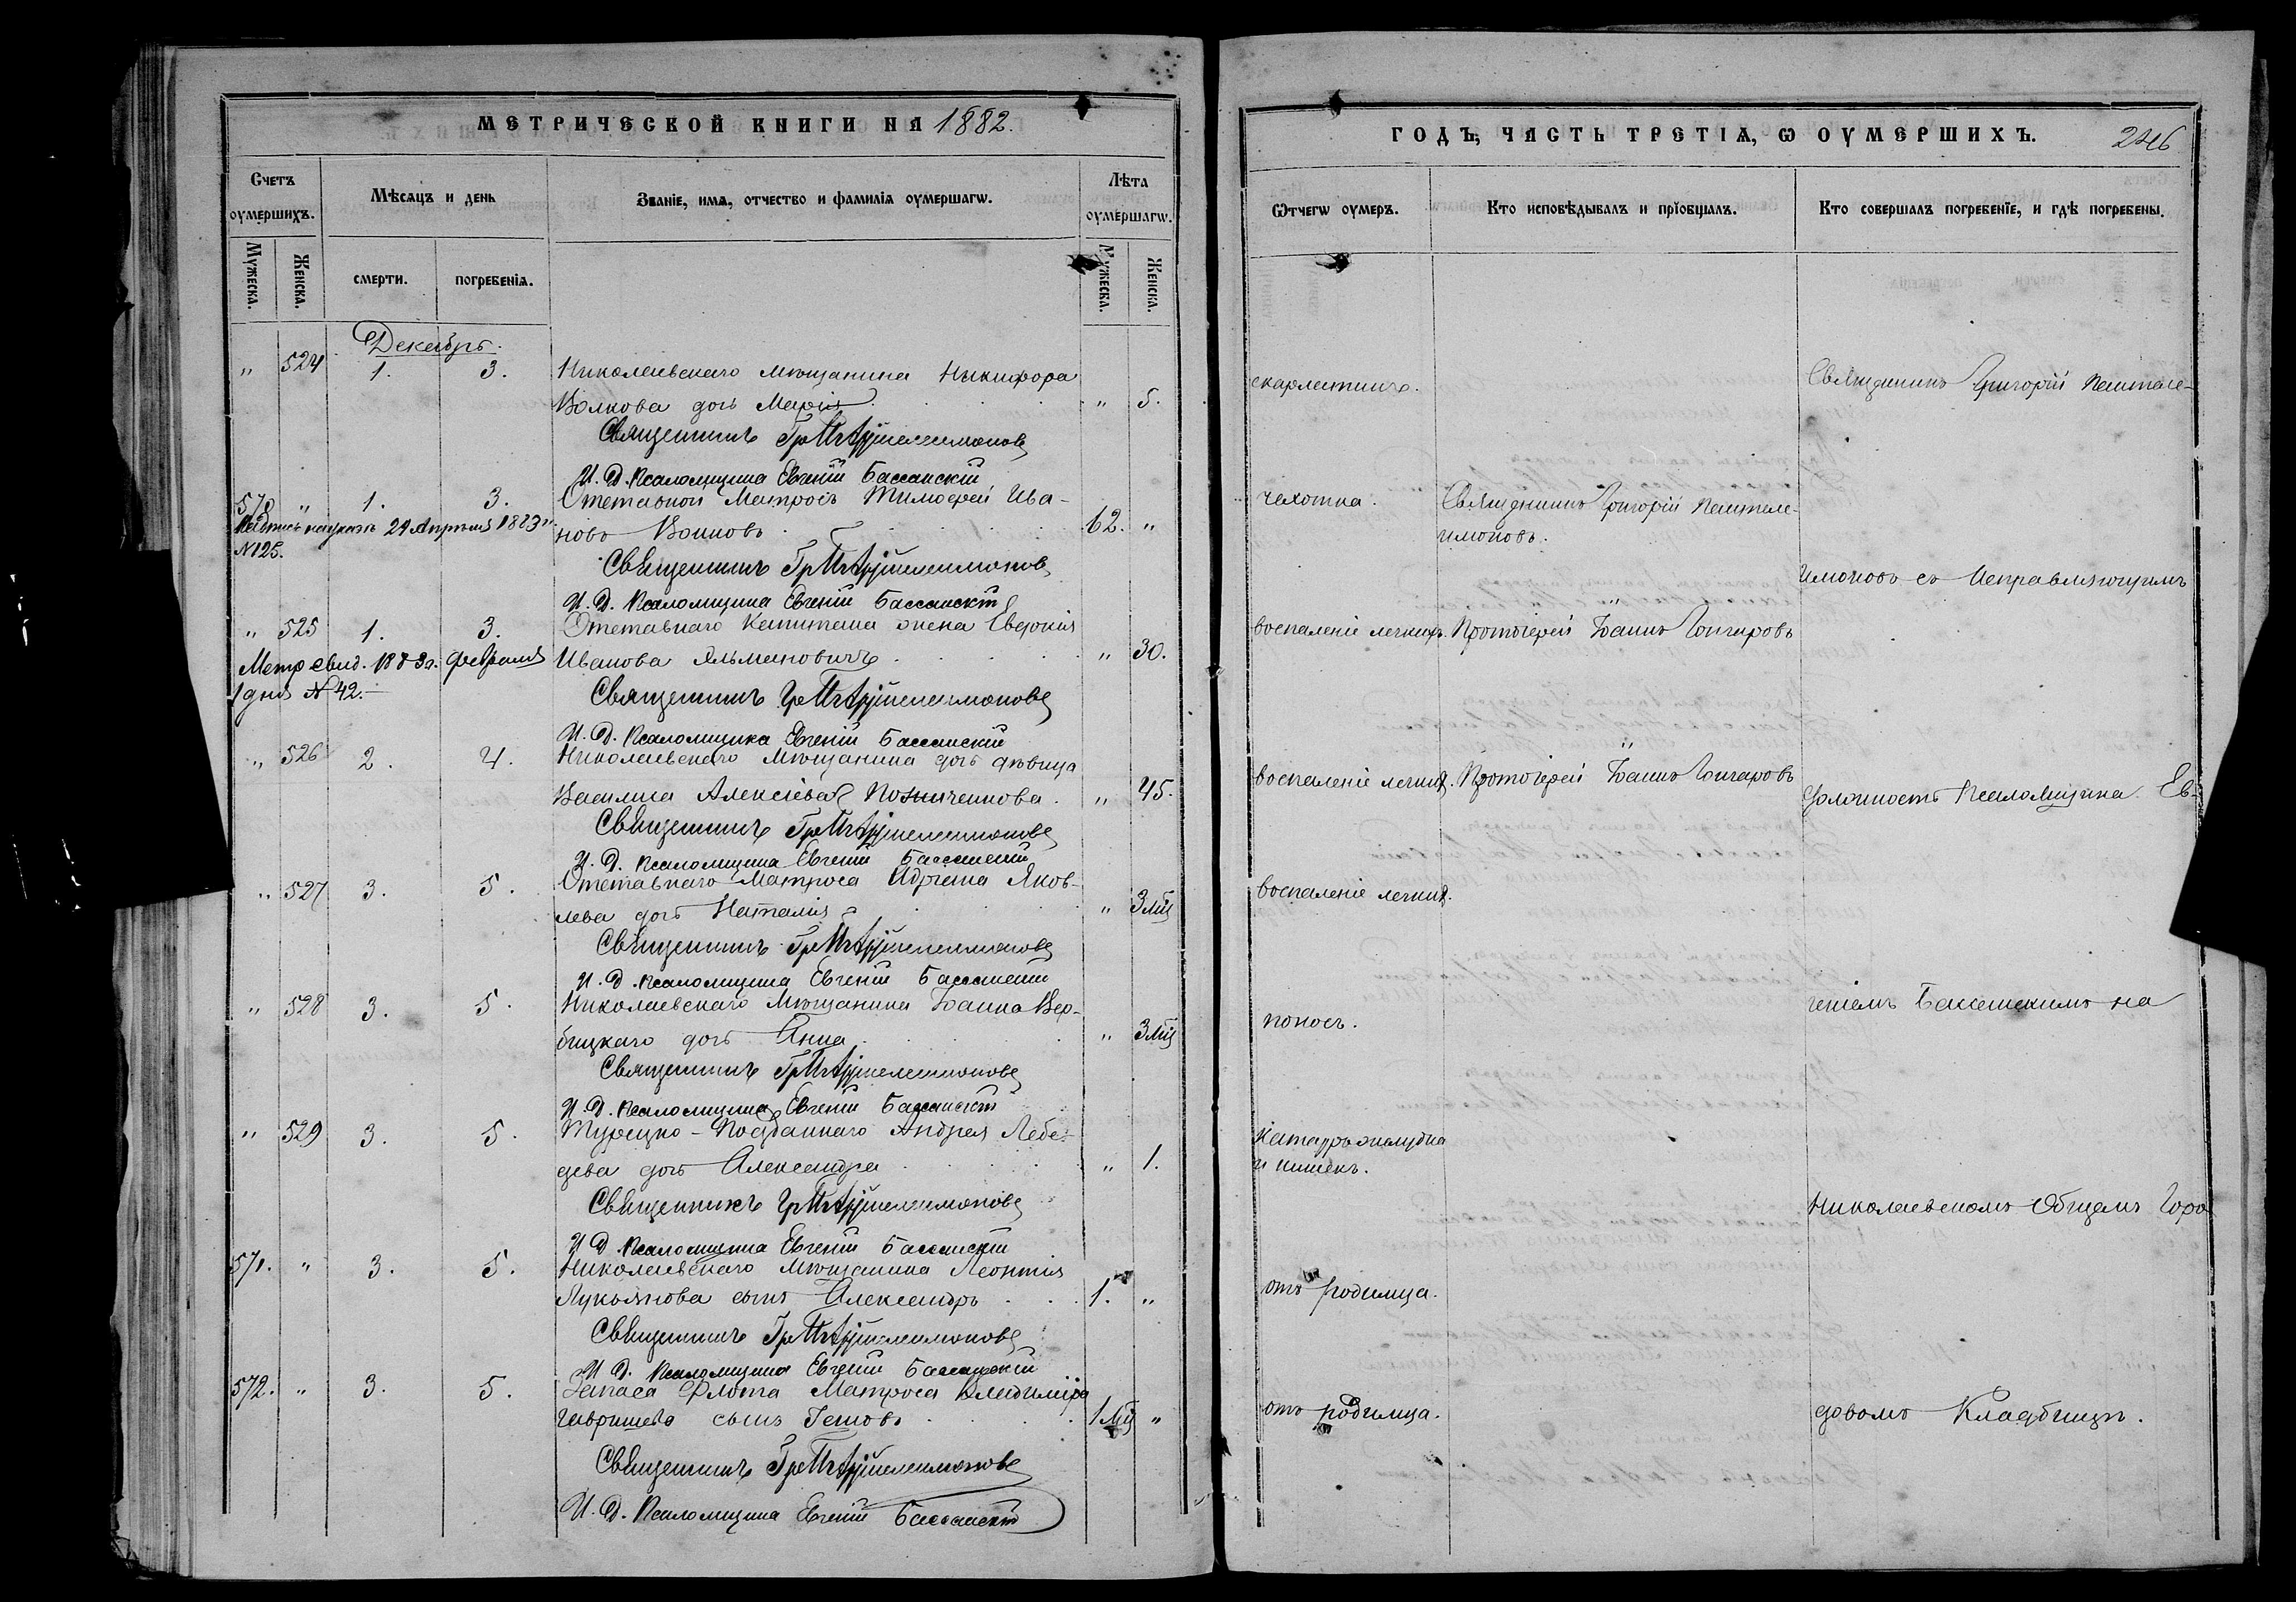 МЕТРИЧЕСКОЙ КНИГИ НА 1882.
Счетъ оумершихъ.
Мѣсяцъ и день
Званіе, имя, отчество и фамилія оумершагѡ.
Лѣта оумершагѡ.
Мужеска.
Женска.
смерти.
погребенія.
Мужеска.
Женска.
Декабрь.
" 524 1. 3. Николаевскаго мѣщанина Никифора
Волкова дочь Марія " 5.
Священникъ Гр Пантелеимоновъ
И. Д. Псаломщика Евгеній
570 " 1. 3. Отставной Матросъ Тимофей Ива-
новъ Воиновъ 62. "
24 Апрѣля 1883
№125.
Священникъ Гр Пантелеимоновъ
И. Д. Псаломщика Евгеній
" 525 1. 3. Отставнаго Капитана жена Евдокія
Иванова " 30.
Метр. свид. 1883 г. Февраля
1 дня №42.
Священникъ Гр Пантелеимоновъ
И. Д. Псаломщика Евгеній
" 526 2. 4. Николаевскаго Мѣщанина дочь дѣвица
Василиса Алексіева " 45.
Священникъ Гр Пантелеимоновъ
И. Д. Псаломщика Евгеній
" 527 3. 5. Отставнаго Матроса Яков-
лева дочь Наталія " 3 мц
Священникъ Гр Пантелеимоновъ
И. Д. Псаломщика Евгеній
" 528 3. 5. Николаевскаго Мѣщанина Іоанна Вер-
бицкаго дочь Анна " 3 мц
Священникъ Гр Пантелеимоновъ
И. Д. Псаломщика Евгеній
" 529 3. 5. Турецко-Подданнаго Андрея Лебе-
дева дочь Александра " 1.
Священникъ Гр Пантелеимоновъ
И. Д. Псаломщика Евгеній
571. " 3. 5. Николаевскаго Мѣщанина Леонтія
Лукьянова сынъ Александръ 1. "
Священникъ Гр Пантелеимоновъ
И. Д. Псаломщика Евгеній
572. " 3. 5. Запаса Флота Матроса Владиміра
сынъ 1 мц "
Священникъ Гр Пантелеимоновъ
И. Д. Псаломщика Евгеній
ГОДЪ, ЧАСТЬ ТРЕТІЯ, Ѡ ОУМЕРШИХЪ. 246
Ѿчегѡ оумеръ.
Кто исповѣдывалъ и пріобщалъ.
Кто совершалъ погребеніе, и гдѣ погребены.
скарлатина.
Священникъ Григорій Пантеле-
чахотка.
Священникъ Григорій Пантеле-
имоновъ.
имоновъ съ Исправляющимъ
воспаленіе легкихъ. Протоіерей Іоаннъ Гончаровъ
воспаленіе легких. Протоіерей Іоаннъ Гончаровъ
должность Псаломщика Ев-
воспаленіе легких.
геніемъ на
поносъ.
Катарръ желудка
и кишекъ.
Николаевскомъ Общемъ Горо
отъ родимца.
отъ родимца.
довомъ Кладбищѣ.